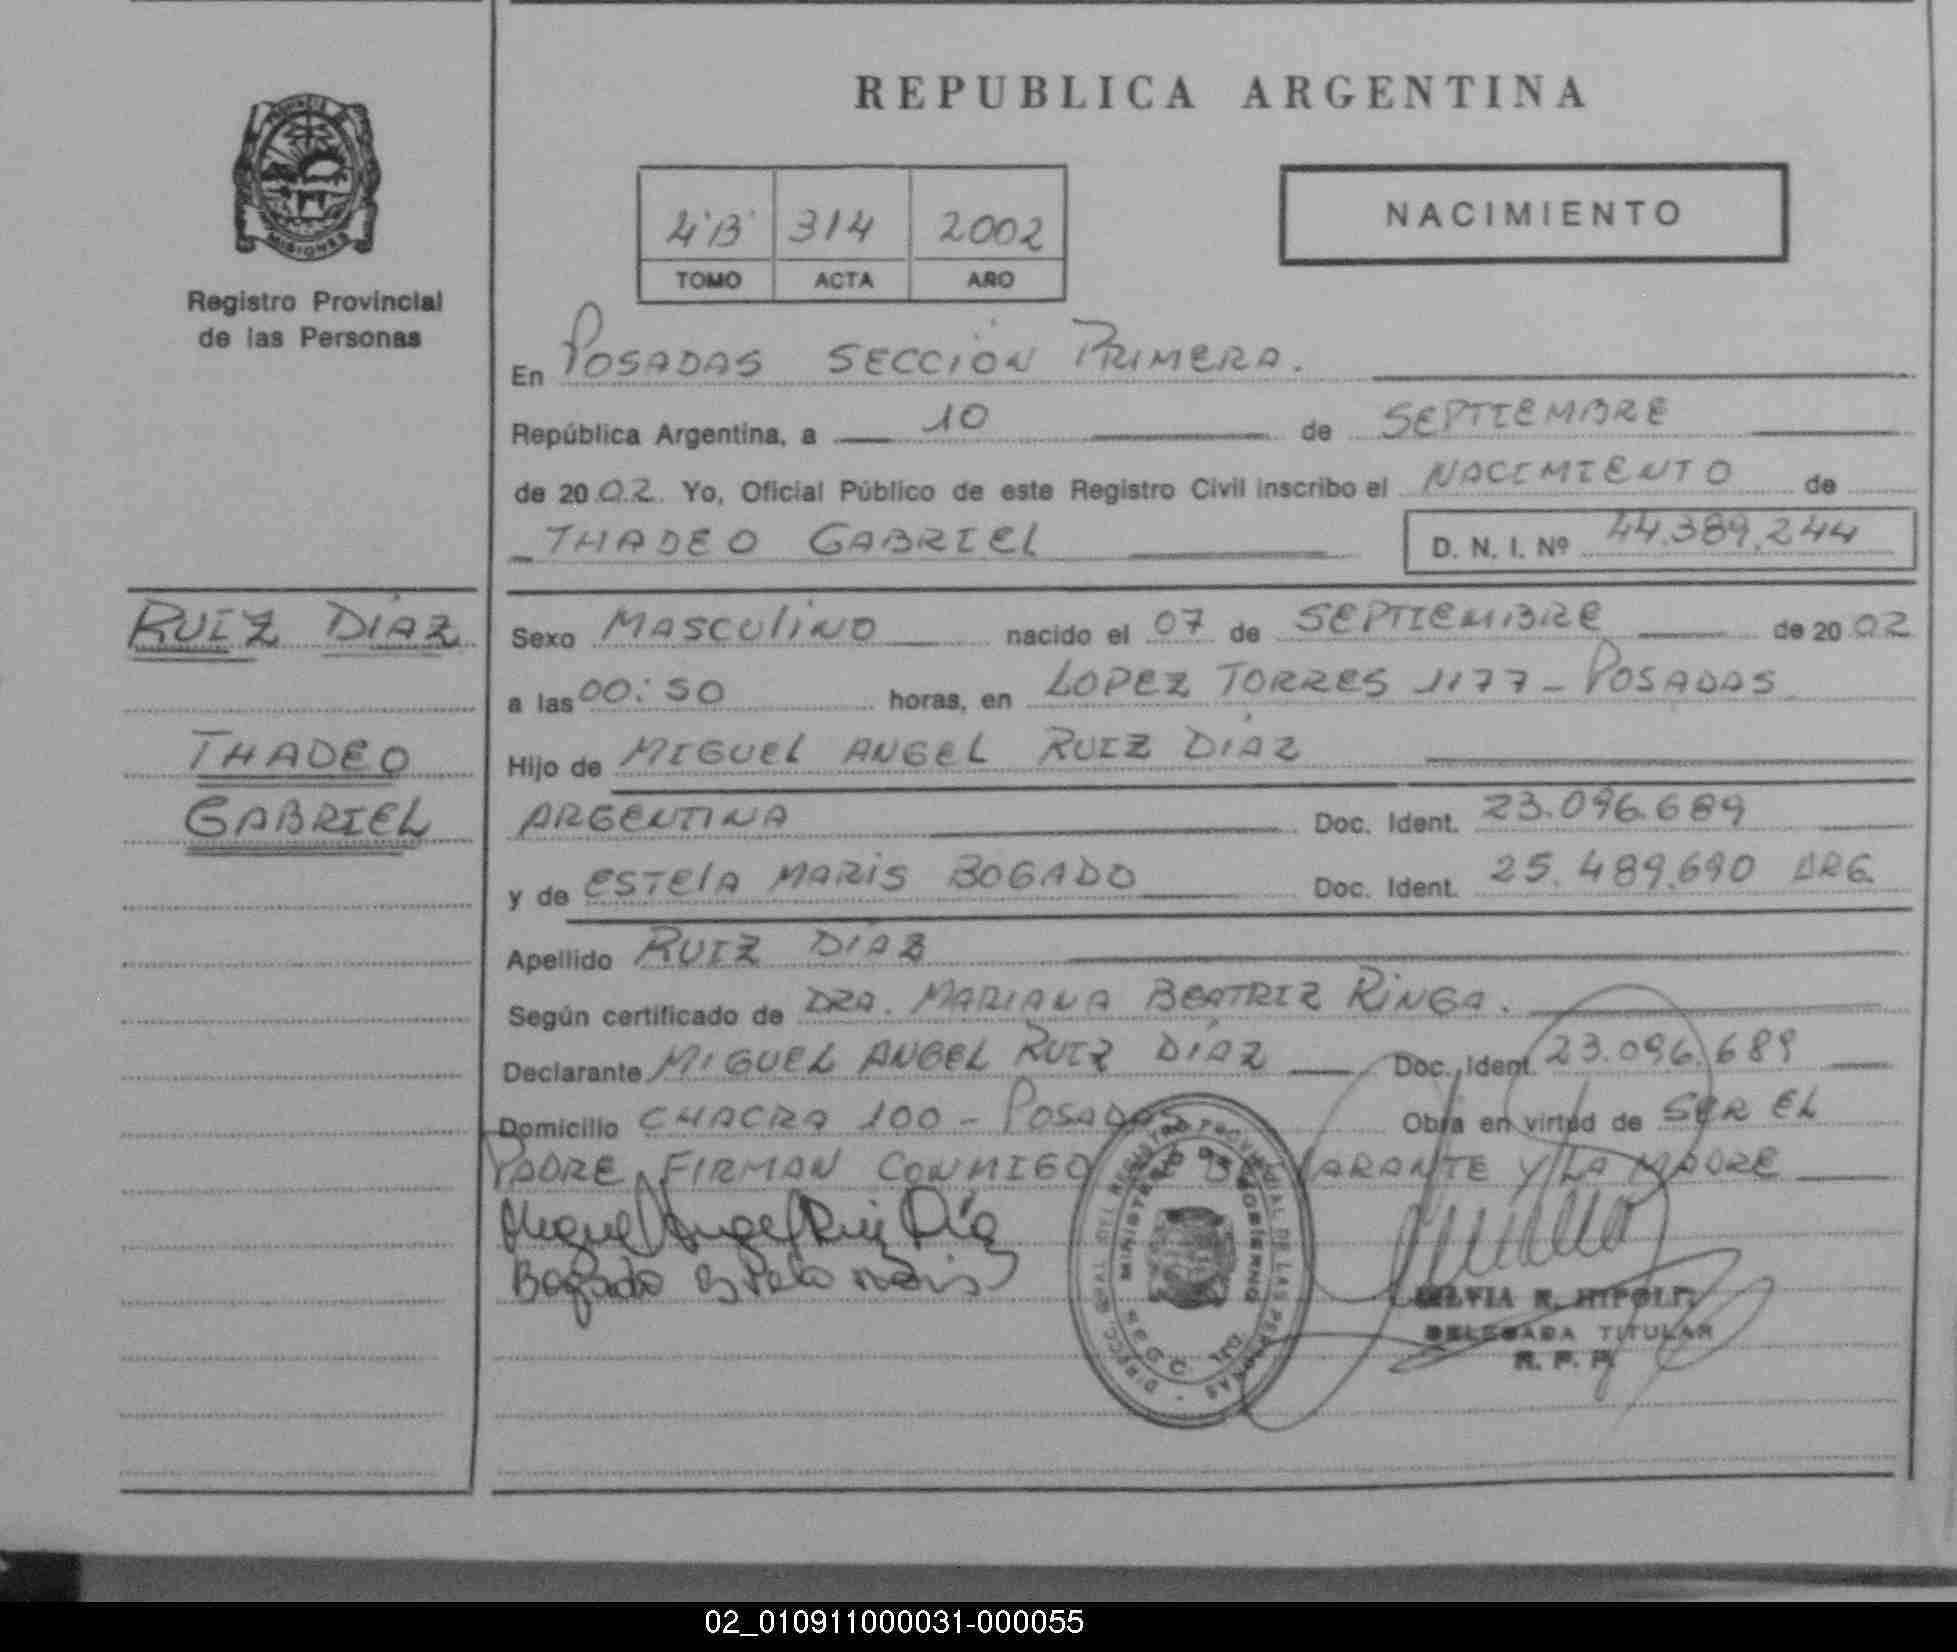 REPUBLICA ARGENTINA
MISIONES
Registro Provincial
de las Personas
4'B' 314 2002
TOMO ACTA AÑO
NACIMIENTO
En POSADAS SECCIÓN PRIMERA.
República Argentina, a 10 de SEPTIEMBRE
de 2002. Yo, Oficial Público de este Registro Civil inscribo el NACIMIENTO de
THADEO GABRIEL D. N. I. Nº 44.389.244
RUIZ DÍAZ
THADEO
GABRIEL
Sexo MASCULINO nacido el 07 de SEPTIEMBRE de 2002
a las 00:50 horas, en LOPEZ TORRES 1177 - POSADAS
Hijo de MIGUEL ANGEL RUIZ DÍAZ
ARGENTINA Doc. Ident. 23.096.689
y de ESTELA MARIS BOGADO Doc. Ident. 25.489.690 ARG.
Apellido RUIZ DÍAZ
Según certificado de DRA. MARIANA BEATRIZ RINGA.
Declarante MIGUEL ANGEL RUIZ DÍAZ Doc. Ident. 23.096.689
Domicilio CHACRA 100 - POSADAS Obra en virtud de SER EL
PADRE, FIRMAN CONMIGO ARANTE Y LA MADRE
Miguel Angel Ruiz Díaz
Bogado Estela Maris
MINISTERIO DE GOBIERNO
SILVIA R. HIPOLI
DELEGADA TITULAR
R. P. P.
02_010911000031-000055